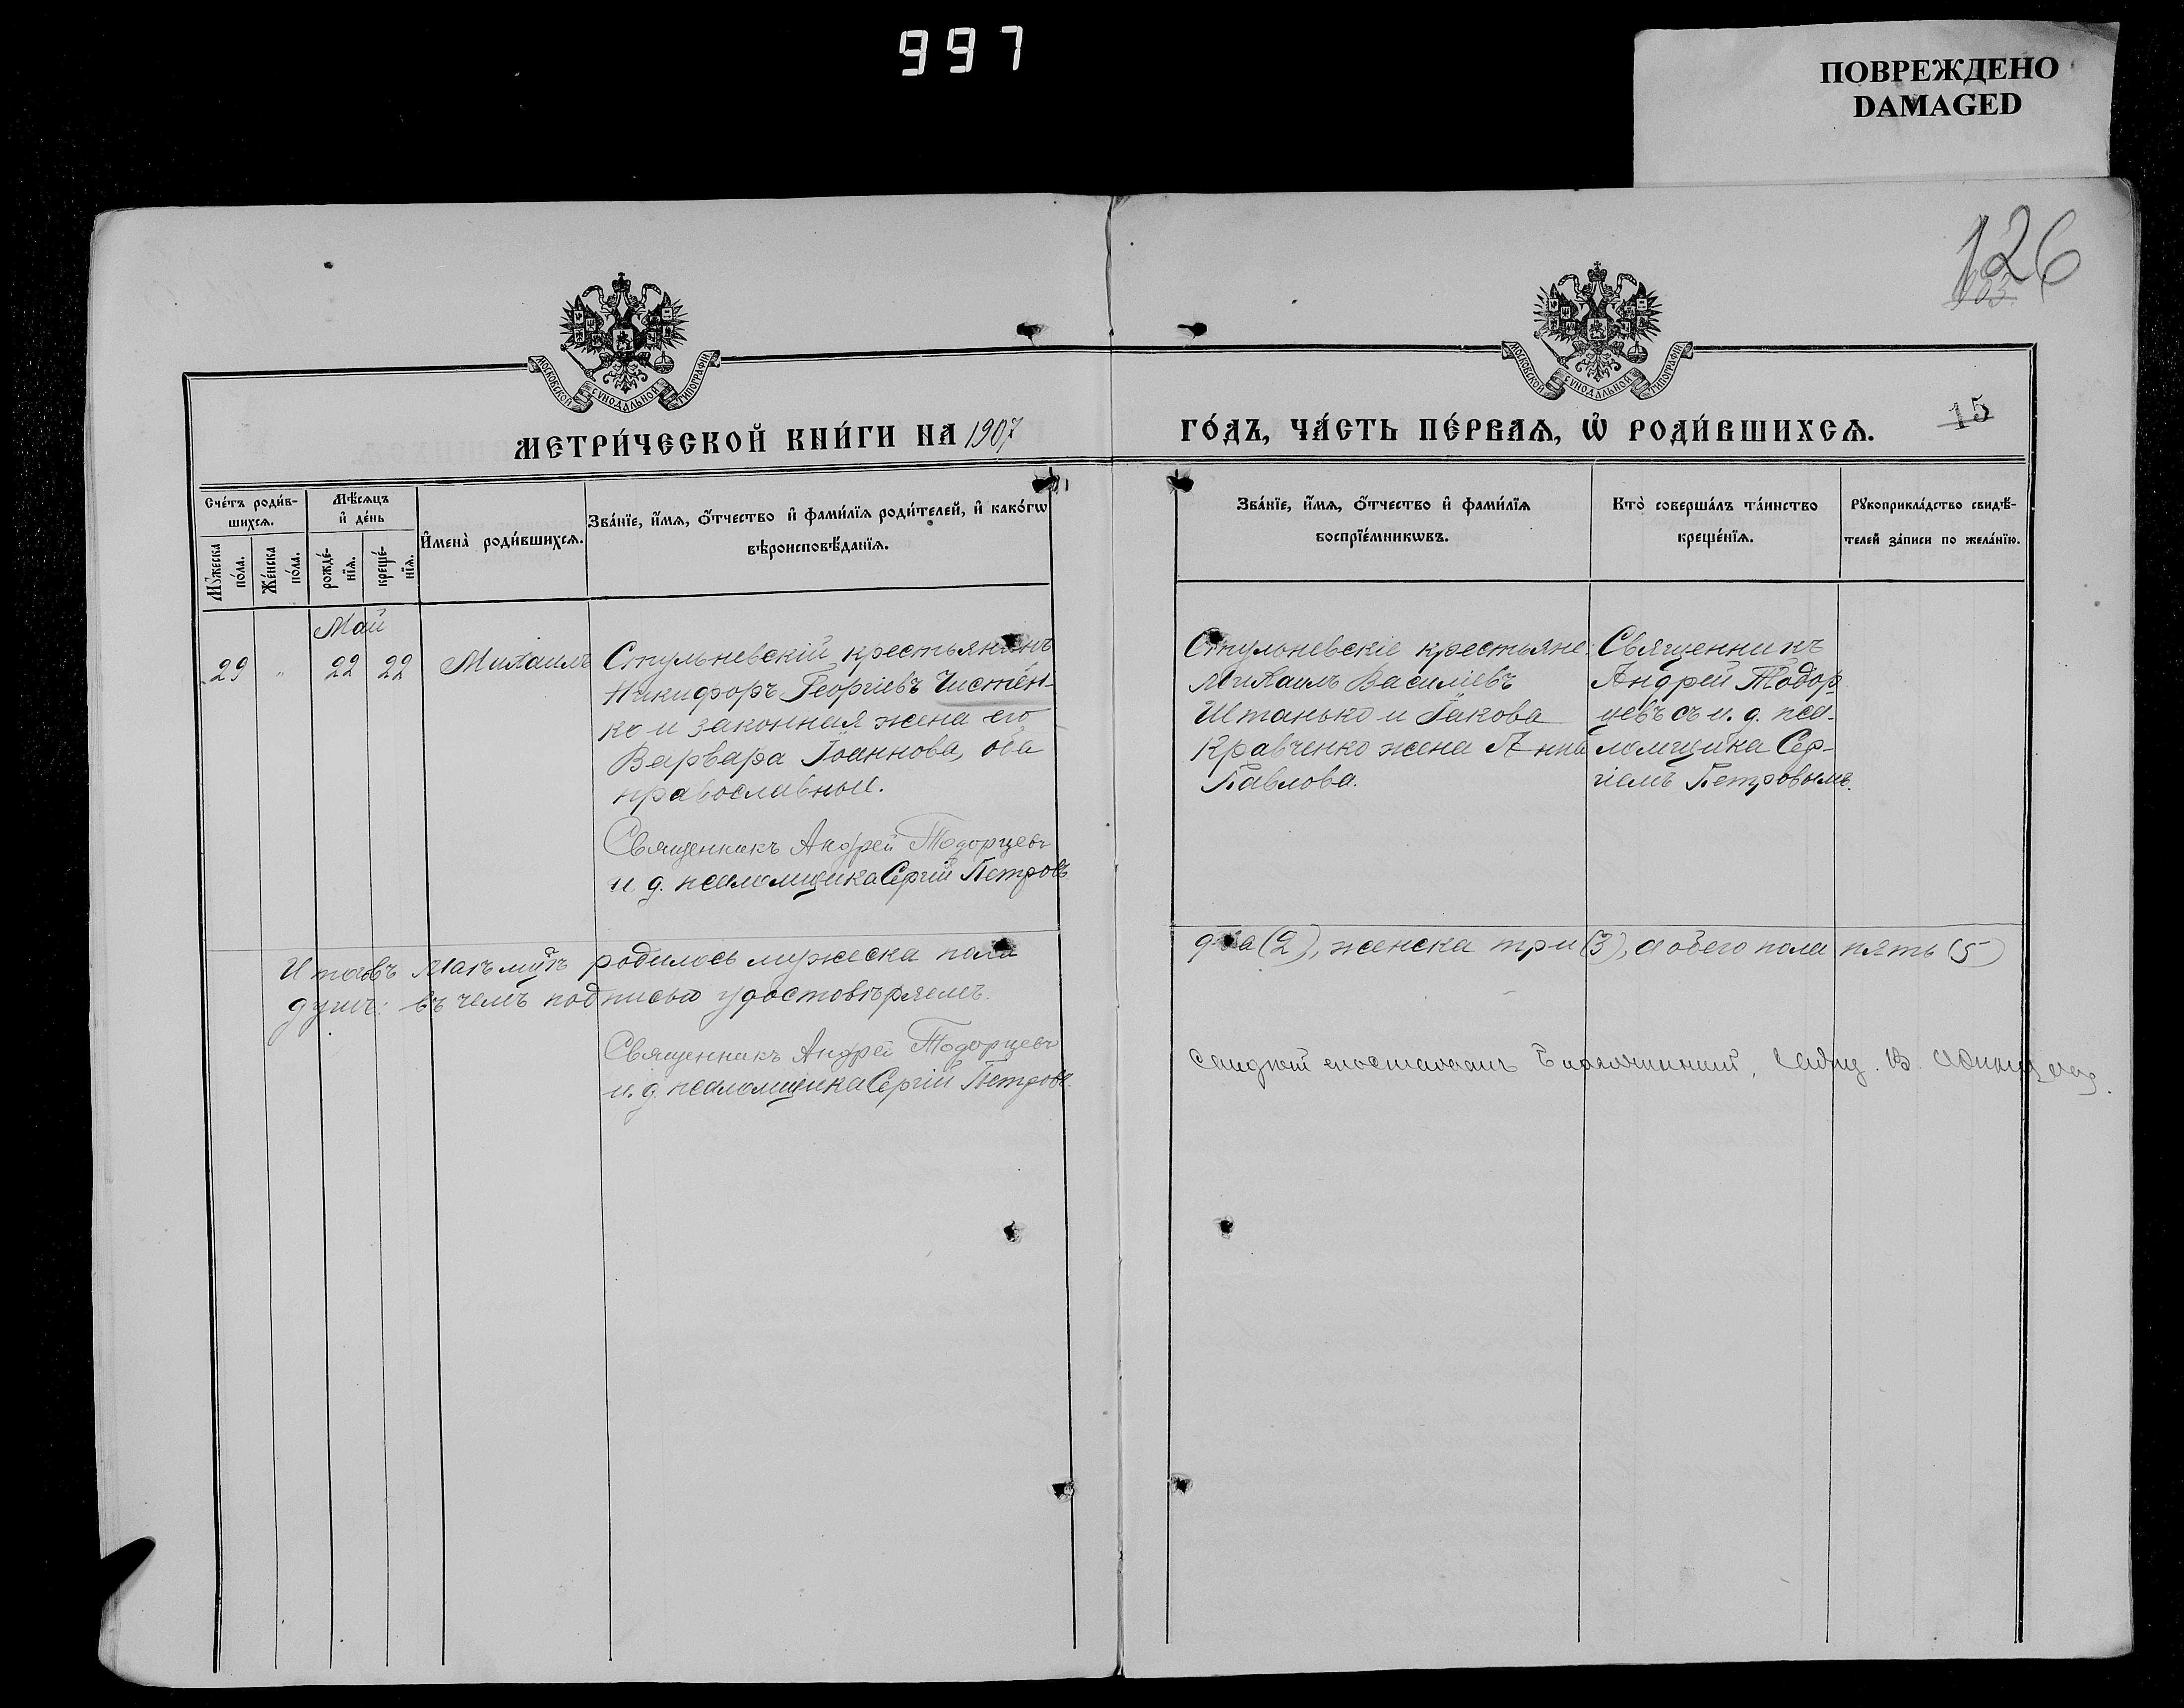 997
ПОВРЕЖДЕНО
DAMAGED
126
103
МОСКОВСКОЙ СѴНОДАЛЬНОЙ ТИПОГРАФІИ
МОСКОВСКОЙ СѴНОДАЛЬНОЙ ТИПОГРАФІИ
МЕТРИ́ЧЕСКОЙ КНИ́ГИ НА 1907
ГО́ДЪ, ЧА́СТЬ ПЕ́РВАѦ, Ѡ҆ РОДИ́ВШИХСѦ.
15
Сче́тъ роди́в-
шихсѧ.
Мѣ́сѧцъ
и҆ де́нь
Мꙋ́жеска
по́ла.
Же́нска
по́ла.
рожде́-
нїѧ.
креще́-
нїѧ.
И҆мена̀ роди́вшихсѧ.
Зва́нїе, и҆́мѧ, ѻ҆́тчество и҆ фами́лїѧ роди́телей, и҆ како́гѡ
вѣроисповѣ́данїѧ.
Зва́нїе, и҆́мѧ, ѻ҆́тчество и҆ фами́лїѧ
воспрїе́мникѡвъ.
Кто̀ соверша́лъ та́инство
креще́нїѧ.
Рꙋкоприкла́дство свидѣ́-
телей за́писи по жела́нїю.
Май
29 " 22 22 Михаилъ
Стульневскій крестьянинъ
Никифоръ Георгіевъ Чистен-
ко и законная жена его
Варвара Іоаннова, оба
православные.
Священникъ Андрей Тодорцевъ
и. д. псаломщика Сергій Петровъ
Стульневскіе крестьяне:
Михаилъ Василіевъ
Штанько и Іакова
Кравченко жена Анна
Павлова.
Священникъ
Андрей Тодор-
цевъ съ и. д. пса-
ломщика Сер-
гіемъ Петровымъ.
Итого въ Маѣ м-цѣ родилось мужеска пола два (2), женска три (3), а обего пола пять (5)
душъ: въ чемъ подписью удостовѣряемъ.
Священникъ Андрей Тодорцевъ
и. д. псаломщика Сергій Петровъ